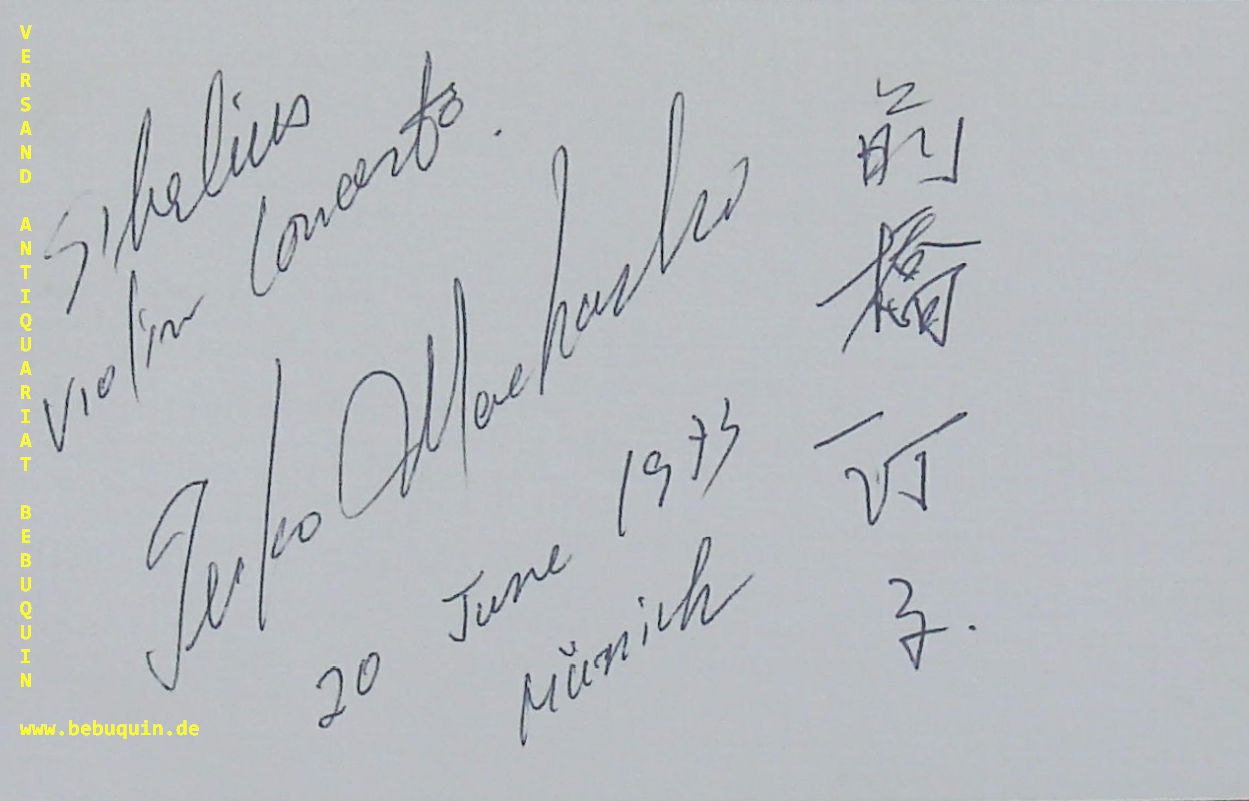 VERSAND ANTIQUARIAT BEBUQUIN
www.bebuquin.de
Sibelius
Violin Concerto.
Teiko Maehashi
20 June 1973
Münich
前橋汀子.